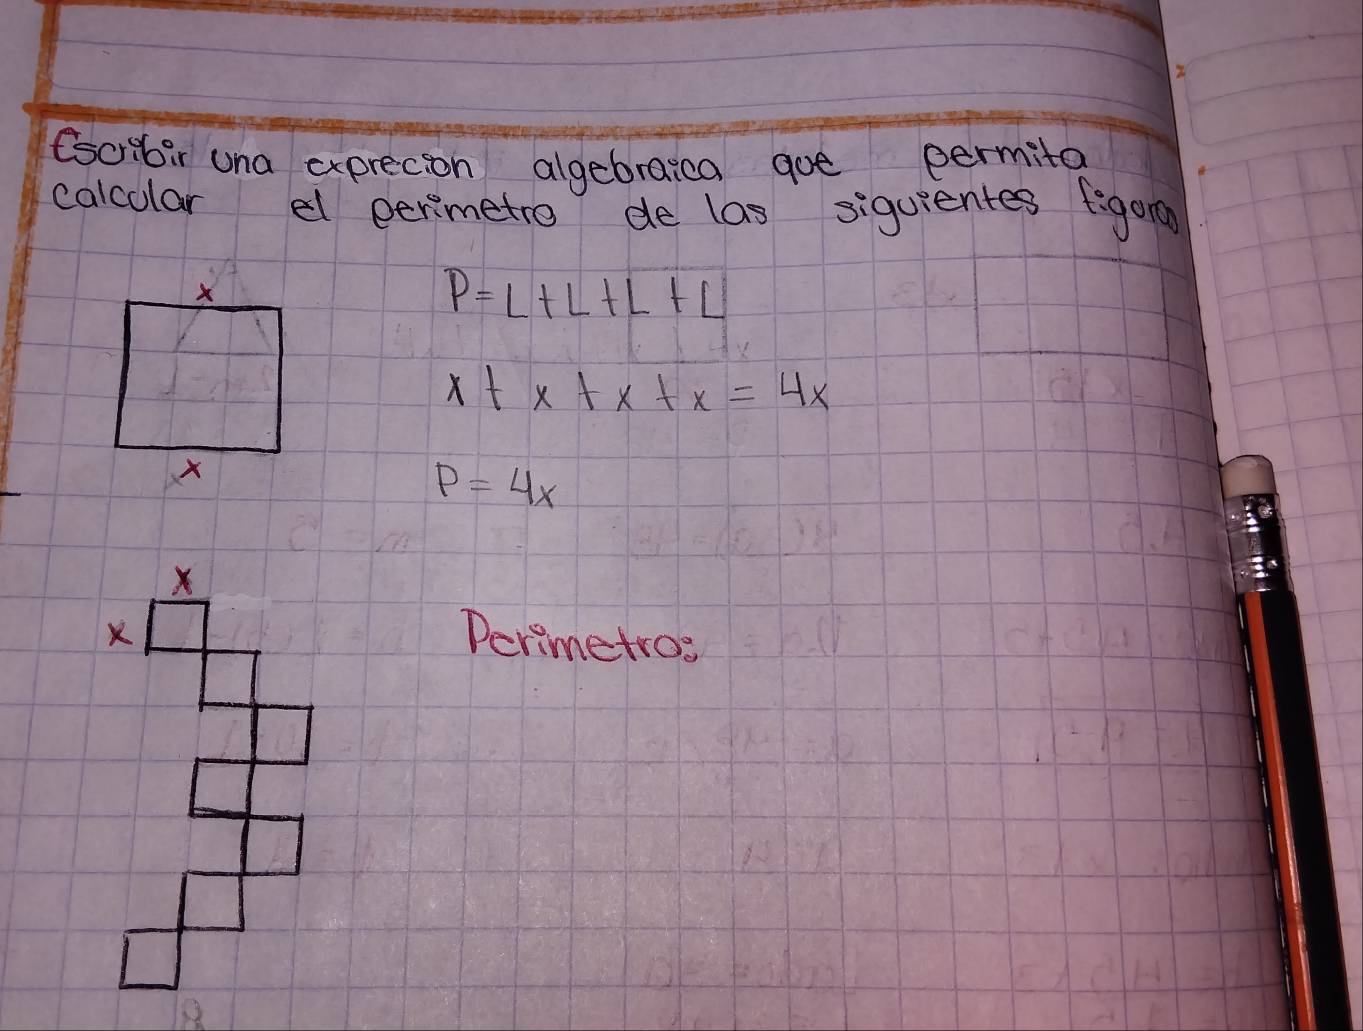 Escribir una exprecion algebraica que permita
calcular el perimetro de las siguientes figuras
x
P=L+L+L+L
x+x+x+x=4x
x
P=4x
x
x
Perimetro: